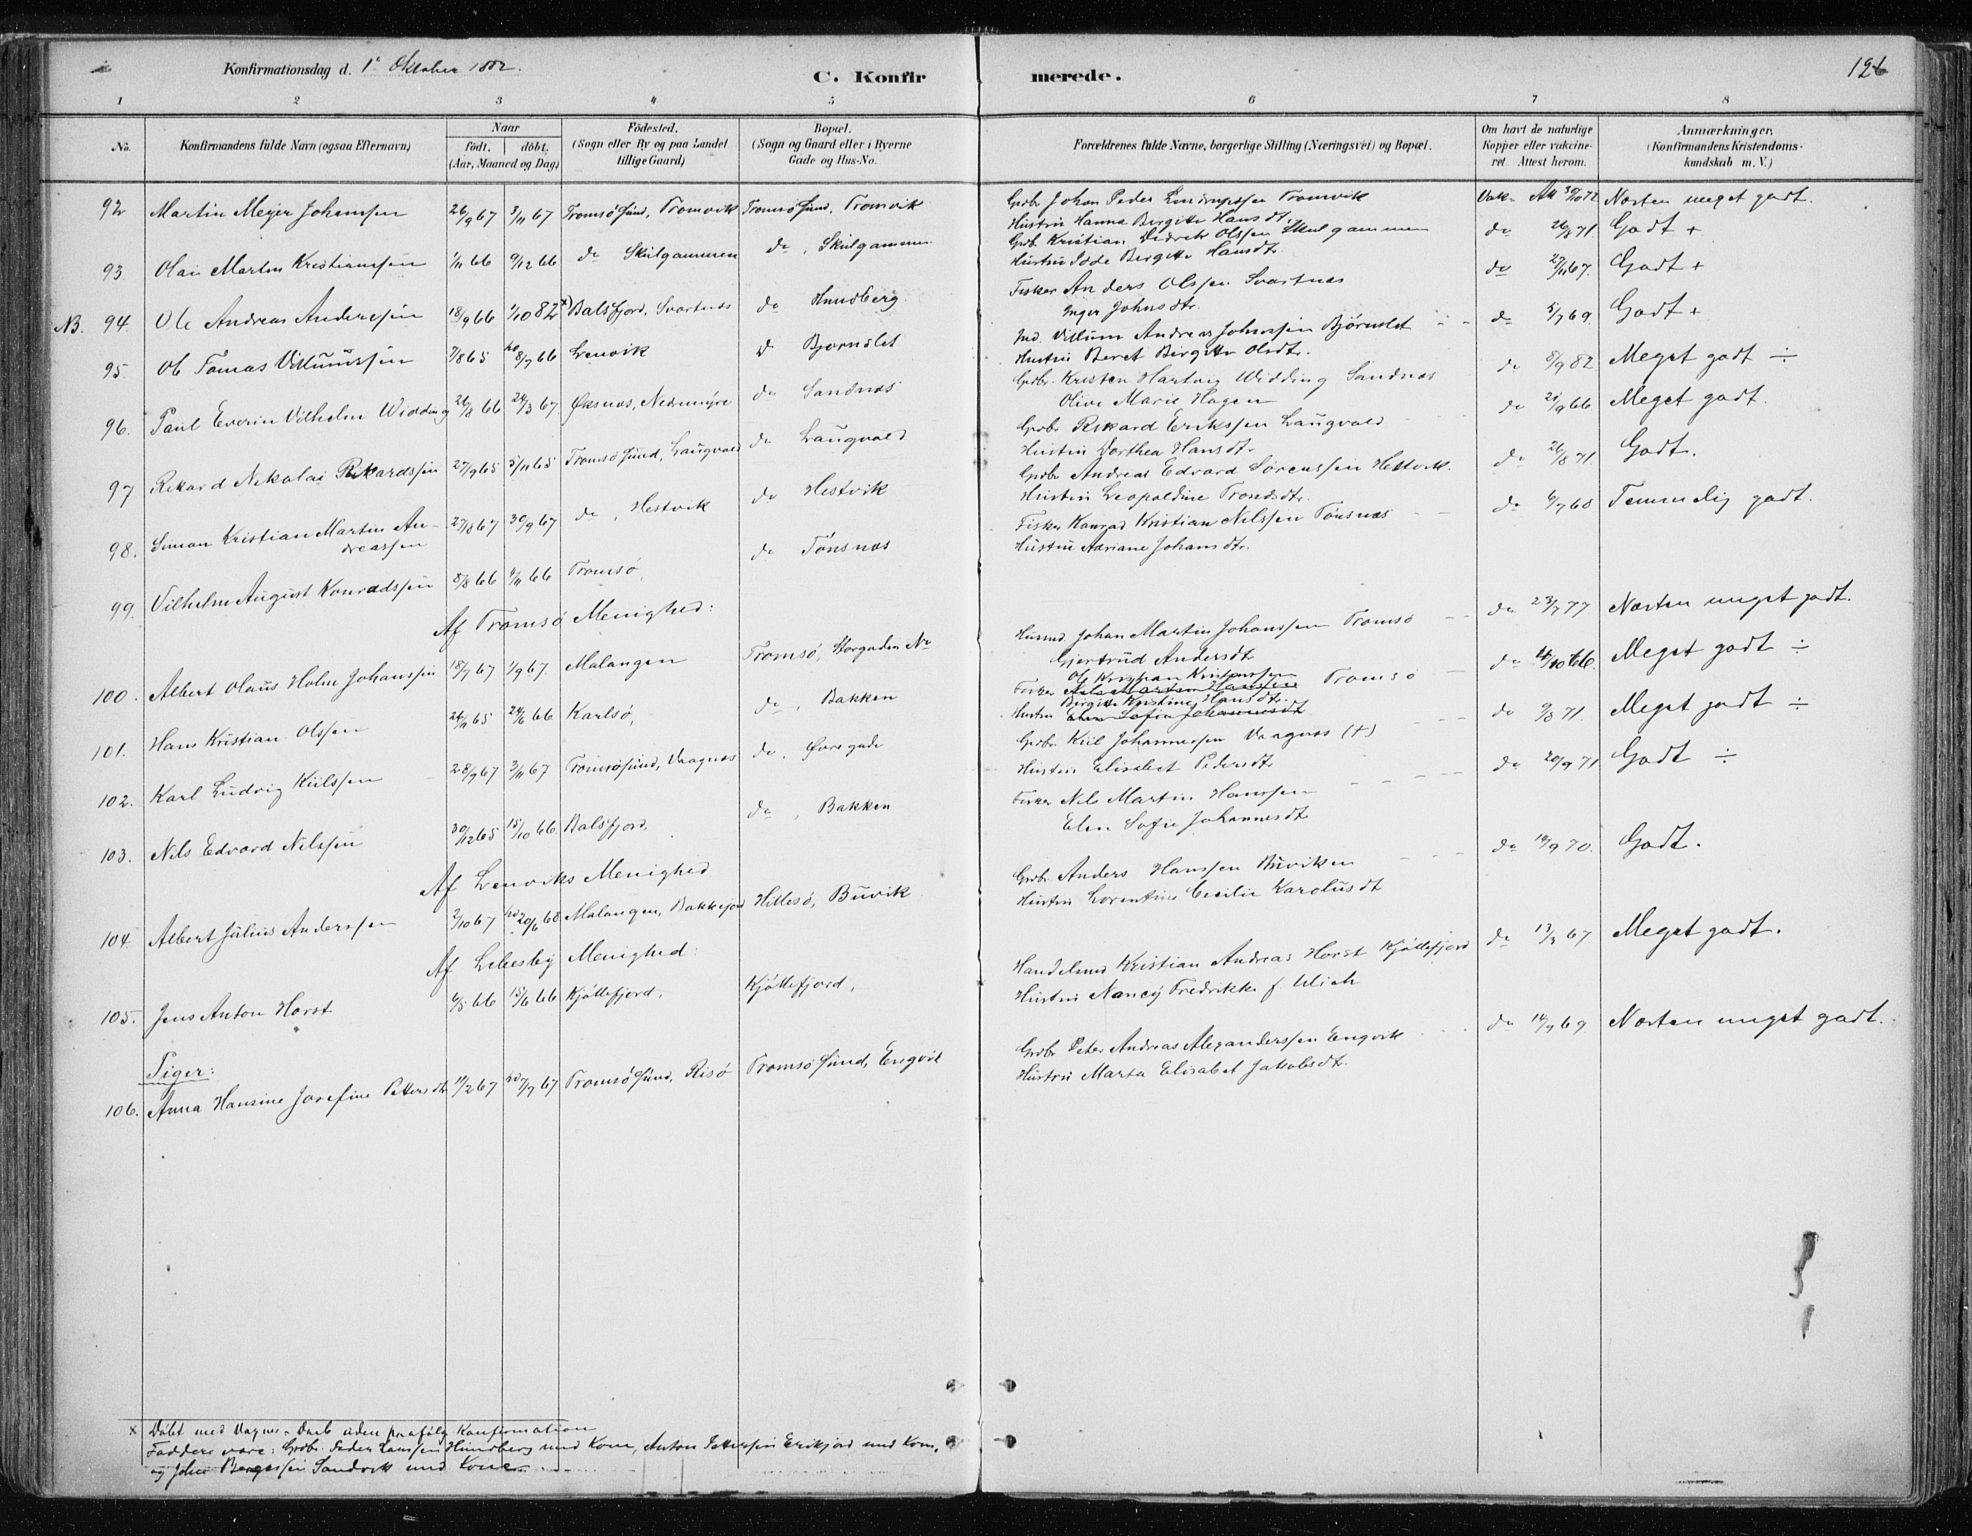 Konfirmationsdag d. 1ste Oktober 1882.
C. Konfirmerede.
126
1 2 3 4 5 6 7 8
No. Konfirmandens fulde Navn (ogsaa Efternavn) Naar født. døbt. (Aar, Maaned og Dag) Fødested. (Sogn eller By og paa Landet tillige Gaard) Bopæl. (Sogn og Gaard eller i Byerne Gade og Hus-No. Forældrenes fulde Navne, borgerlige Stilling (Næringsvei) og Bopæl. Om havt de naturlige Kopper eller vaccineret. Attest herom. Anmærkninger. (Konfirmandens Kristendomskundskab m. V.)
92 Martin Meyer Johanssen 26/9 67 3/11 67 Tromsøsund, Tromvik Tromsøsund, Tromvik Gbr. Johan Peder Lindrupssen Tromvik Vak. Att 30/10 72 Næsten meget godt.
Hustru Hanna Birgitte Hansdt.
93. Olai Martin Kristianssen 1/11 66 9/12 66 do Skulgammen do, Skulgammen Gbr. Kristian Didrik Olssen Skulgammen do 26/8 71 Godt +
Hustru Birgitte Hansdtr
NB. 94. Ole Andreas Anderssen 18/9 66 1/10 82 x) Balsfjord, Svartnæs do Hundberg. Fisker Anders Olssen Svartnæs do 27/11 67. Godt +
Inger Johnsdtr.
95. Ole Tomas Villumssen 7/8 65 hd 8/7 66 Lenvik do Bjørnslet Ind. Villum Andreas Johnssen Bjørnslet do 5/7 69. Godt +
Hustru Beret Birgitte Olsdtr.
96. Paul Everin Vilhelm Widding 26/8 66 24/3 67. Øksnæs, Nedremyre do Sandnæs Gbr. Kristen Hartvig Widding Sandnæs do 8/9 82 Meget godt ÷
Olive Marie Hagen
97 Rikard Nikolai Rikardssen 27/9 65 5/11 65 Tromsøsund, Laugvold do Laugvold Gbr. Rikard Erikssen Laugvold do 21/9 66 Meget godt.
Hustru Dorthea Hansdtr
98. Simon Kristian Martin Andreassen 27/8 67 30/9 67 do, Hestvik do Hestvik Gbr. Andreas Edvard Sørenssen Hestvik. do 26/8 71. Godt.
Hustru Leopoldine Trondsdtr.
99. Vilhelm August Konradssen 8/8 66 4/11 66 Tromsø, do Tønsnæs Fisker Konrad Kristian Nilssen Tønsnæs do 6/7 68 Temmelig godt.
Hustru Adriane Johansdtr.
Af Tromsø Menighed:
100. Albert Olaus Holm Johanssen 18/7 67 1/9 67. Malangen Tromsø, Storgaden No Husmd Johan Martin Johanssen Tromsø do 23/7 77. Næsten meget godt.
Gjertrud Andersdt
101. Hans Kristian Olssen 24/11 65 24/6 66 Karlsø, do, Bakken Fisker Ole Kristian Kristenssen Tromsø do 16/10 66. Meget godt ÷
Hustru Birgitte Kristine Hansdtr. Elen Sofie Johannesdt
102. Karl Ludvig Kiilssen 28/9 67 3/11 67 Tromsøsund, Vaagnæs do, Øvregade Gbr. Kiil Johannessen Vaagnæs (+) do 9/8 71. Meget godt ÷
Hustru Elisabet Pedersdtr
103. Nils Edvard Nilssen 30/12 65 15/10 66 Balsfjord, do, Bakken Fisker Nils Martin Hanssen do 20/9 71 Godt ÷
Elen Sofie Johannesdt
Af Lenviks Menighed
104. Albert Julius Anderssen 2/10 67 hd 20/6 68 Malangen, Bakkejord Hillesø, Buvik Gbr. Anders Hanssen Buviken do 19/9 70. Godt.
Hustru Lorentine Cecilie Karolusdt
Af Lebesby Menighed:
105. Jens Anton Horst 6/5 66 15/6 66 Kjøllefjord, Kjøllefjord, Handelsmd Kristian Andreas Horst Kjøllefjord do 13/3 67 Meget godt.
Hustru Nancy Fredrikke f Ulich
Piger:
106. Anna Hansine Josefine Pettersdt 11/2 67 hd 7/7 67 Tromsøsund, Risø Tromsøsund, Engvik Gbr. Peter Andreas Alexanderssen Engvik do 14/9 69. Næsten meget godt.
Hustru Marta Elisabet Jakobsdtr.
x Døbt med Voxnes-Daab uden paafølg Konfirmation
Faddere vare: Gbr. Peder Larssen Hundberg med Kone, Anton Petterssen Erikjord med Kone,
og Johan Sandvik med Kone.